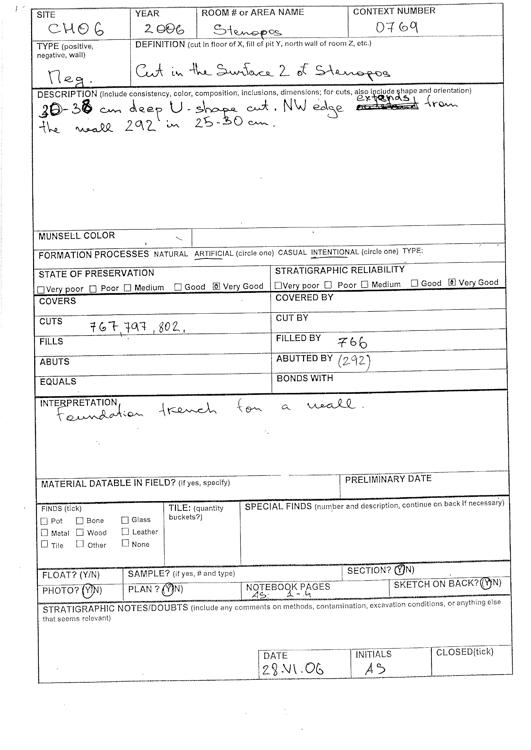 SITE YEAR ROOM # or AREA NAME CONTEXT NUMBER
CH06 2006 Stenopos 0769
TYPE (positive, negative, wall) DEFINITION (cut in floor of X, fill of pit Y, north wall of room Z, etc.)
Neg. Cut in the Surface 2 of Stenopos
DESCRIPTION (include consistency, color, composition, inclusions, dimensions; for cuts, also include shape and orientation)
30-38 cm deep U-shape cut. NW edge extends from
the wall 292 in 25-30 cm.
MUNSELL COLOR
FORMATION PROCESSES NATURAL ARTIFICIAL (circle one) CASUAL INTENTIONAL (circle one) TYPE:
STATE OF PRESERVATION STRATIGRAPHIC RELIABILITY
Very poor Poor Medium Good Very Good Very poor Poor Medium Good Very Good
COVERS COVERED BY
CUTS 767, 797, 802, CUT BY
FILLS FILLED BY 766
ABUTS ABUTTED BY (292)
EQUALS BONDS WITH
INTERPRETATION
Foundation trench for a wall.
MATERIAL DATABLE IN FIELD? (if yes, specify) PRELIMINARY DATE
FINDS (tick) TILE: (quantity buckets?) SPECIAL FINDS (number and description, continue on back if necessary)
Pot Bone Glass
Metal Wood Leather
Tile Other None
FLOAT? (Y/N) SAMPLE? (if yes, # and type) SECTION? (Y/N)
PHOTO? (Y/N) PLAN? (Y/N) NOTEBOOK PAGES AS: 1-4 SKETCH ON BACK? (Y/N)
STRATIGRAPHIC NOTES/DOUBTS (include any comments on methods, contamination, excavation conditions, or anything else
that seems relevant)
DATE INITIALS CLOSED(tick)
28.VI.06 AS